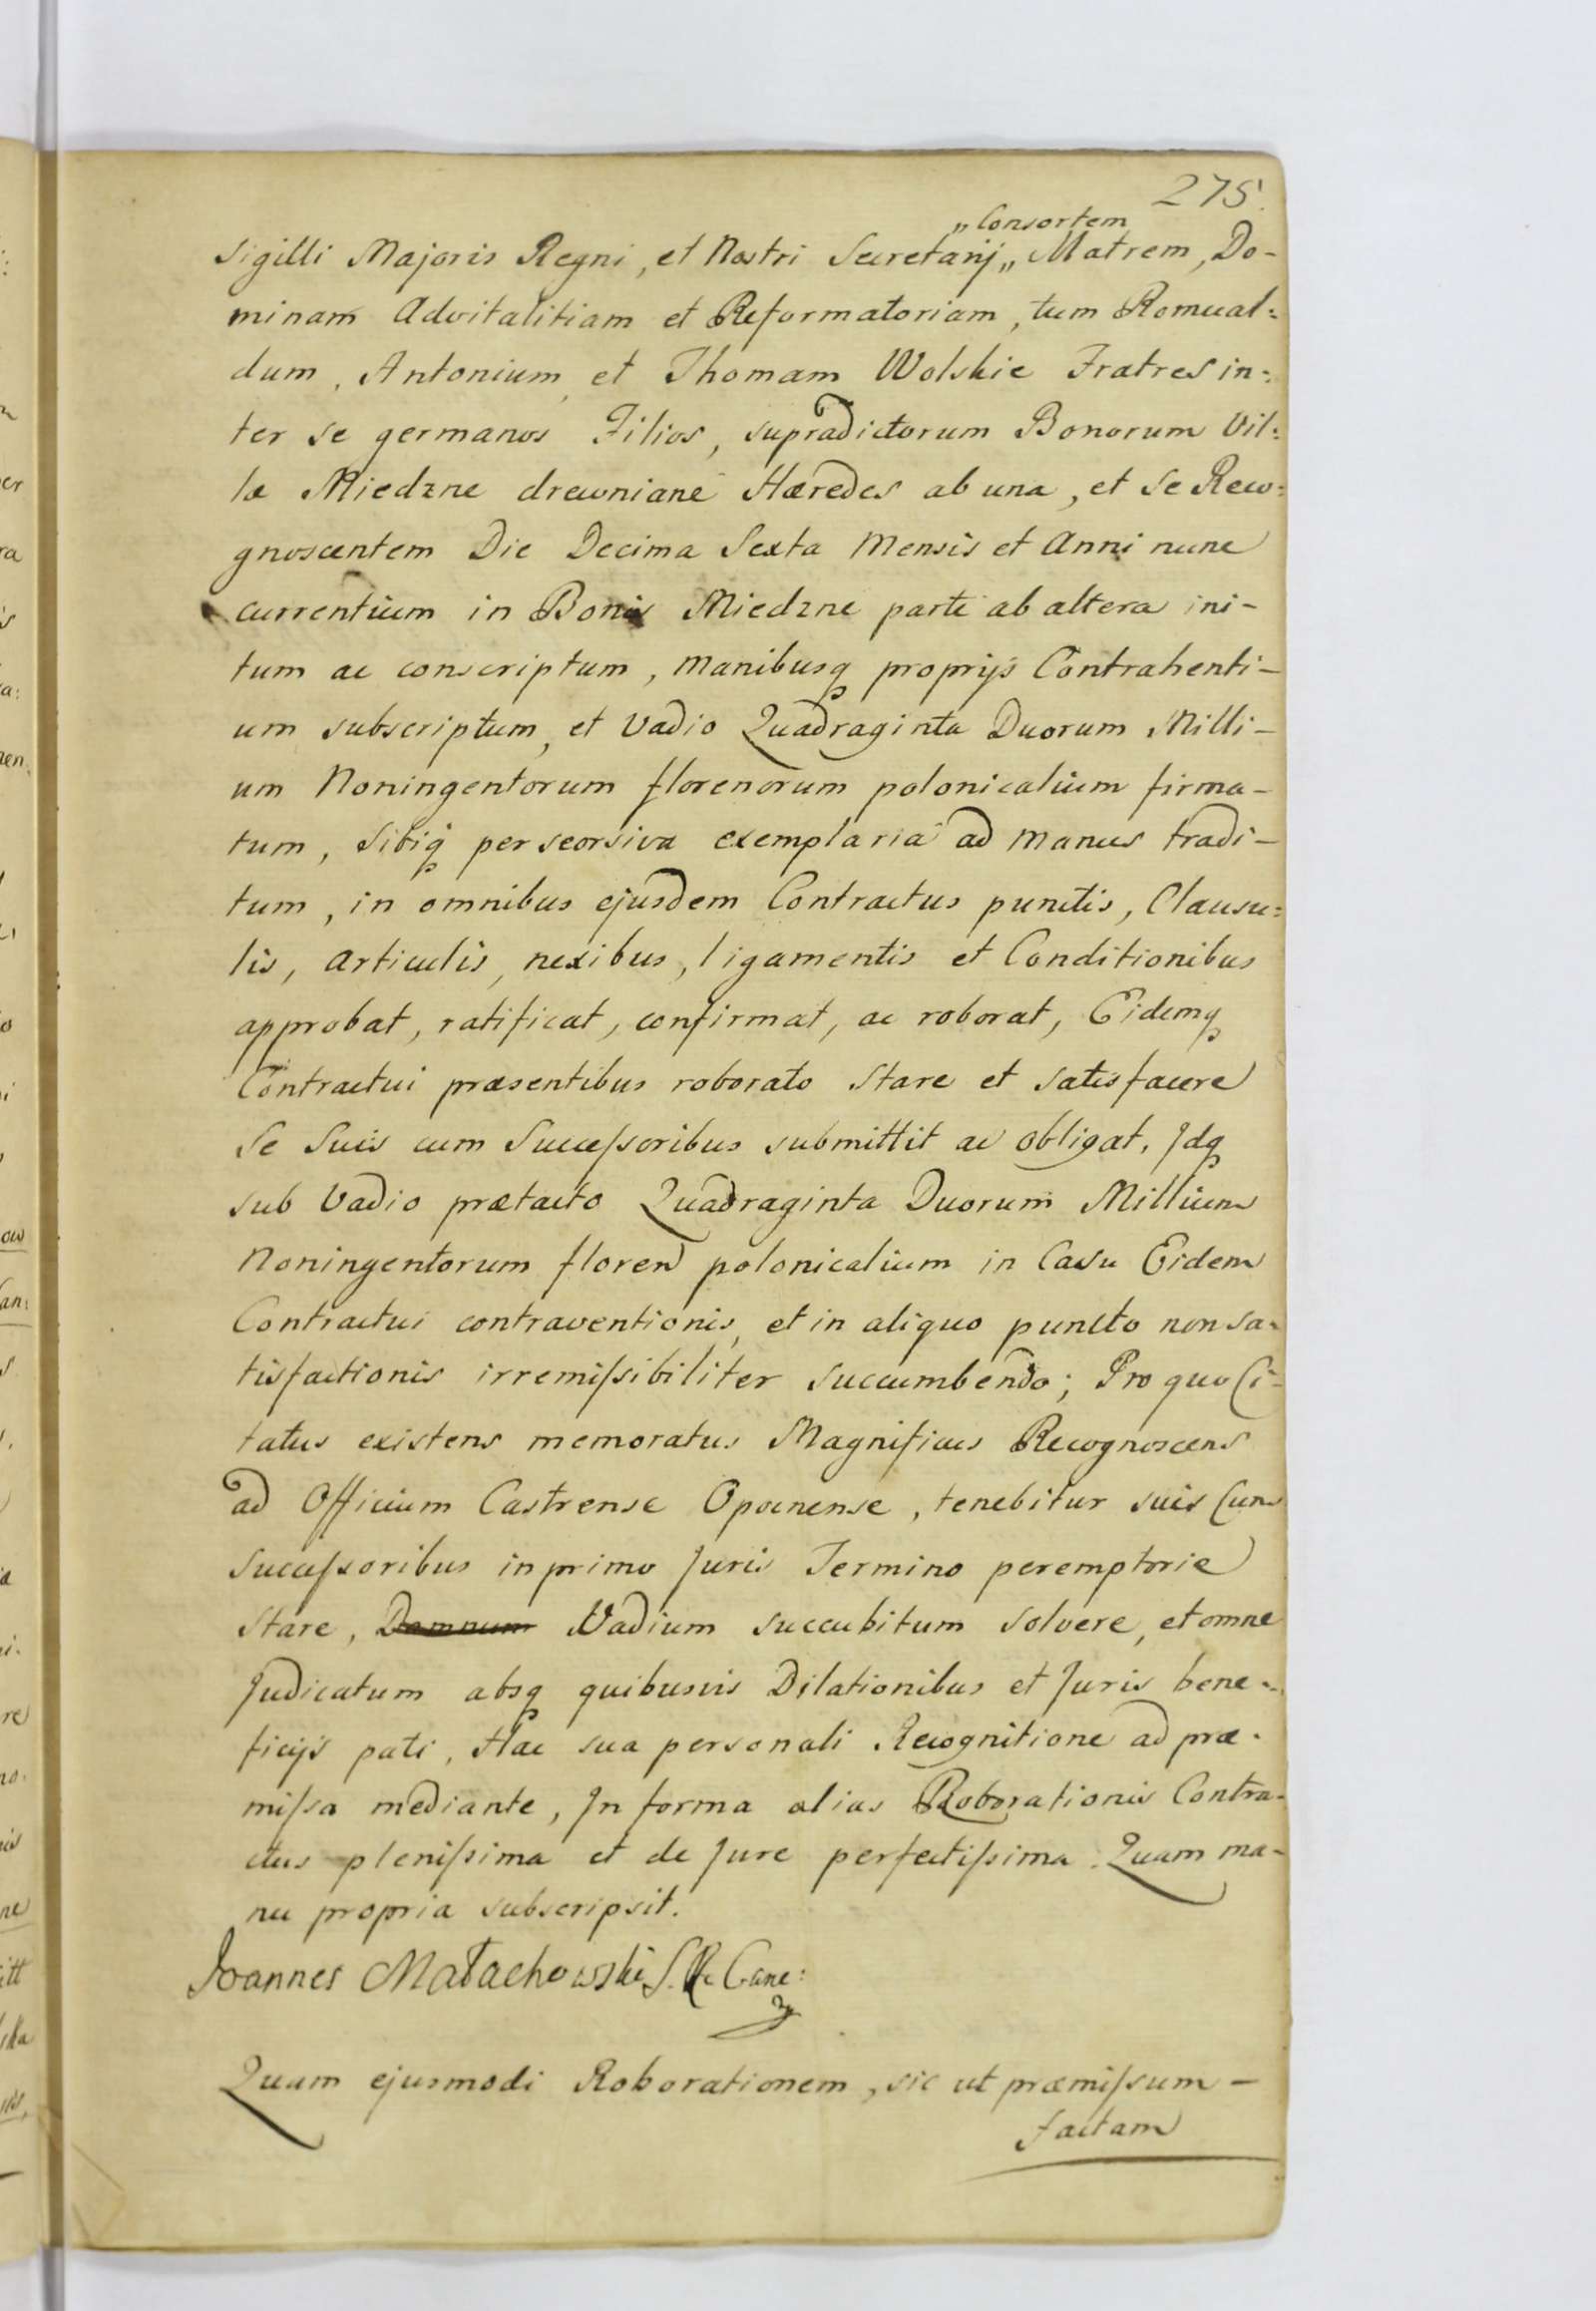 275.
„Consortem
Sigilli Majoris Regni, et Nostri Secretarij „ Matrem, Do-
minam Advitalitiam et Reformatoriam, tum Romual:
dum, Antonium, et Thomam Wolskie Fratres in:
ter se germanos Filios, supradictorum Bonorum Vil:
læ Miedzne drewniane Hæredes ab una, et se Reco:
gnoscentem Die Decima Sexta Mensis et Anni nunc
currentium in Bonis Miedzne parte ab altera ini-
tum ac conscriptum, manibusq proprijs Contrahenti-
um subscriptum, et Vadio Quadraginta Duorum Milli-
um Noningentorum florenorum polonicalium firma-
tum, sibiq per seorsiva exemplaria ad manus tradi-
tum, in omnibus ejusdem Contractus punctis, Clausu:
lis, articulis, nexibus, ligamentis et Conditionibus
approbat, ratificat, confirmat, ac roborat, Eidemq
Contractui præsentibus roborato stare et satisfacere
se suis cum Succeſsoribus submittit ac obligat. Idq
sub Vadio prætacto Quadraginta Duorum Millium
Noningentorum floren polonicalium in Casu Eidem
Contractui contraventionis, et in aliquo puncto non sa-
tisfactionis irremiſsibiliter succumbendo; Pro quo Ci-
tatus existens memoratus Magnificus Recognoscens
ad Officium Castrense Opocnense, tenebitur suis Cum
Succeſsoribus in primo Juris Termino peremptorie
stare, Damnum Vadium succubitum solvere, et omne
Judicatum absq quibusvis Dilationibus et Juris bene-
ficijs pati, Hac sua personali Recognitione ad præ-
miſsa mediante, In forma alias Roborationis Contra-
ctus pleniſsima et de Jure perfectiſsima. Quam ma-
nu propria subscripsit.
Joannes Małachowski S. R. Canc:
Quam ejusmodi Roborationem, sic ut præmiſsum-
factam